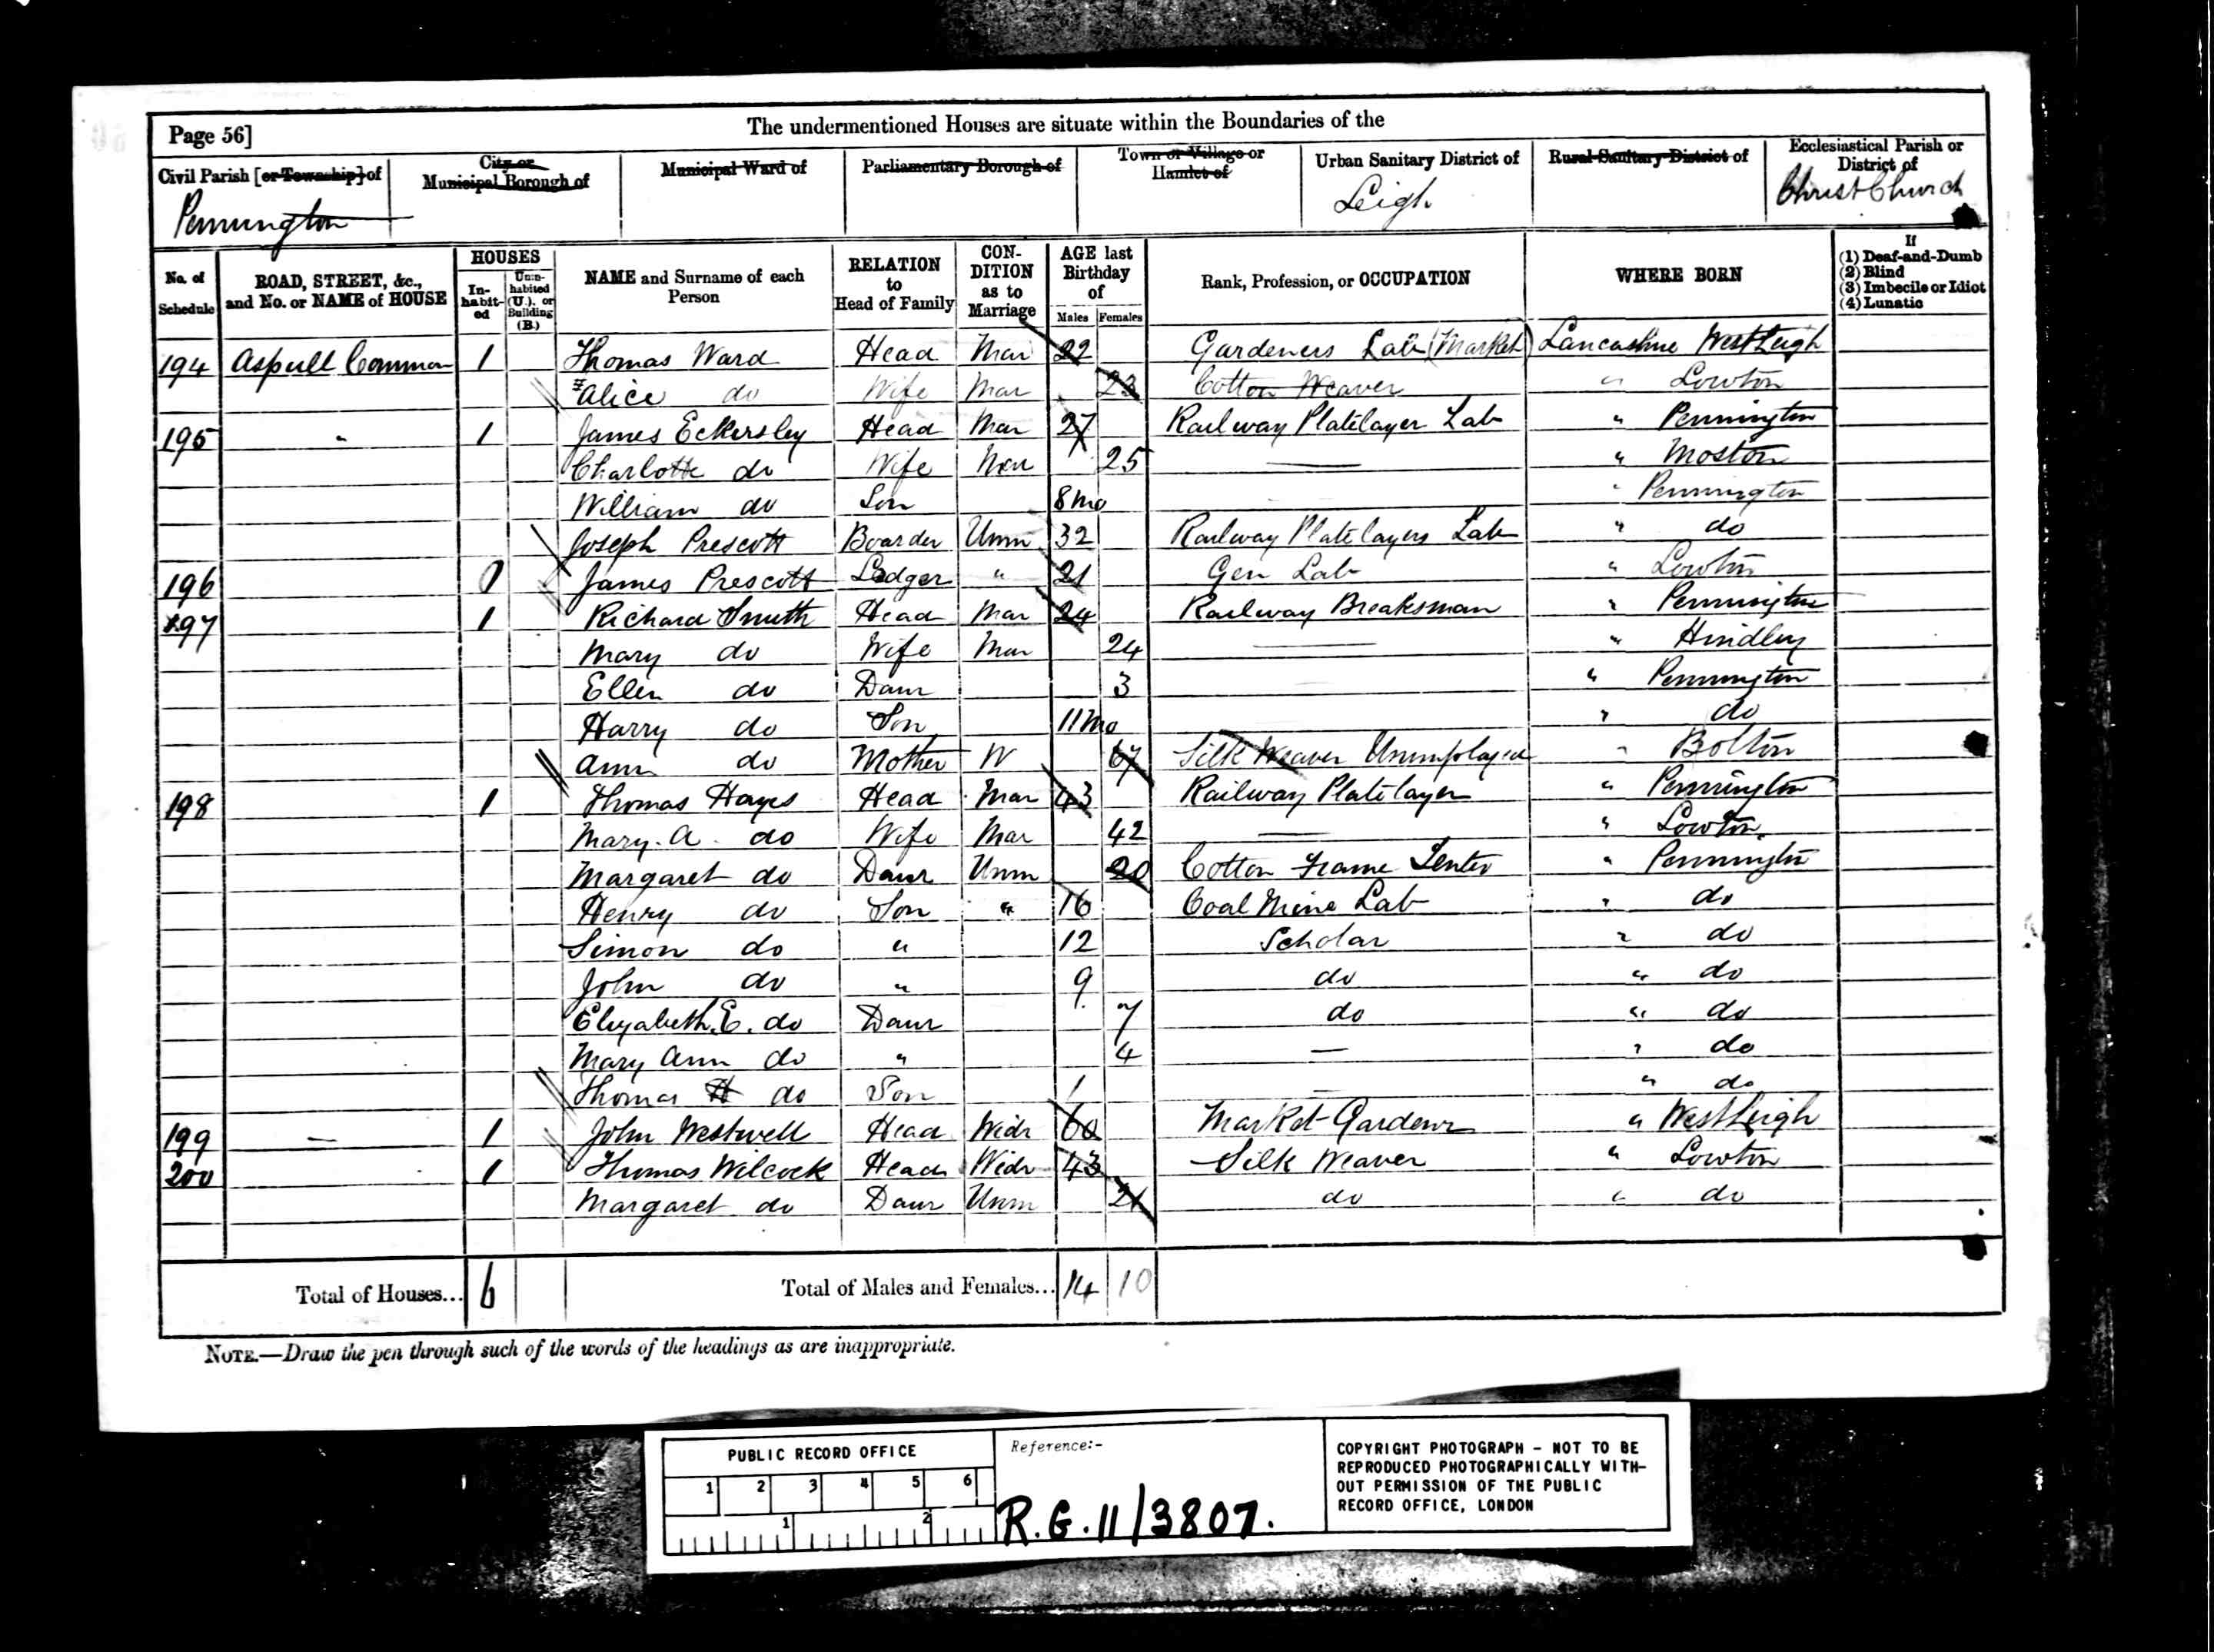 Page 56]
The undermentioned Houses are situate within the Boundaries of the
Civil Parish [or Township] of
City or Municipal Borough of
Municipal Ward of
Parliamentary Borough of
Town or Village or Hamlet of
Urban Sanitary District of
Rural Sanitary District of
Ecclesiastical Parish or District of
Pennington
Leigh
Christ Church
No. of Schedule
ROAD, STREET, &c., and No. or NAME of HOUSE
HOUSES
In-habit-ed
Unin-habited (U.), or Building (B.)
NAME and Surname of each Person
RELATION to Head of Family
CON-DITION as to Marriage
AGE last Birthday of
Males
Females
Rank, Profession, or OCCUPATION
WHERE BORN
If
(1) Deaf-and-Dumb
(2) Blind
(3) Imbecile or Idiot
(4) Lunatic
194 Aspull Common 1 Thomas Ward Head Mar 22 Gardeners Lab (Market) Lancashire WestLeigh
Alice do Wife Mar 23 Cotton Weaver " Lowton
195 " 1 James Eckersley Head Mar 27 Railway Platelayer Lab " Pennington
Charlotte do Wife Mar 25 — " Moston
William do Son 8 mo " Pennington
Joseph Prescott Boarder Unm 32 Railway Platelayers Lab " do
196 James Prescott Lodger " 21 Gen Lab " Lowton
197 1 Richard Smith Head Mar 24 Railway Breaksman " Pennington
Mary do Wife Mar 24 — " Hindley
Ellen do Daur 3 " Pennington
Harry do Son 11 mo " do
Ann do Mother W 67 Silk Weaver Unemployed " Bolton
198 1 Thomas Hayes Head Mar 43 Railway Platelayer " Pennington
Mary. A. do Wife Mar 42 — " Lowton
Margaret do Daur Unm 20 Cotton Frame Tenter " Pennington
Henry do Son " 16 Coal Mine Lab " do
Simon do " 12 Scholar " do
John do " 9 do " do
Elizabeth. E. do Daur 7 do " do
Mary Ann do " 4 — " do
Thomas H do Son 1 — " do
199 — 1 John Westwell Head Widr 60 Market Gardener " WestLeigh
200 1 Thomas Wilcock Head Widr 43 Silk Weaver " Lowton
Margaret do Daur Unm 21 do " do
Total of Houses... 6
Total of Males and Females... 14 10
NOTE.—Draw the pen through such of the words of the headings as are inappropriate.
PUBLIC RECORD OFFICE
1 2 3 4 5 6
1 2
Reference:-
R.G. 11/3807.
COPYRIGHT PHOTOGRAPH - NOT TO BE
REPRODUCED PHOTOGRAPHICALLY WITH-
OUT PERMISSION OF THE PUBLIC
RECORD OFFICE, LONDON